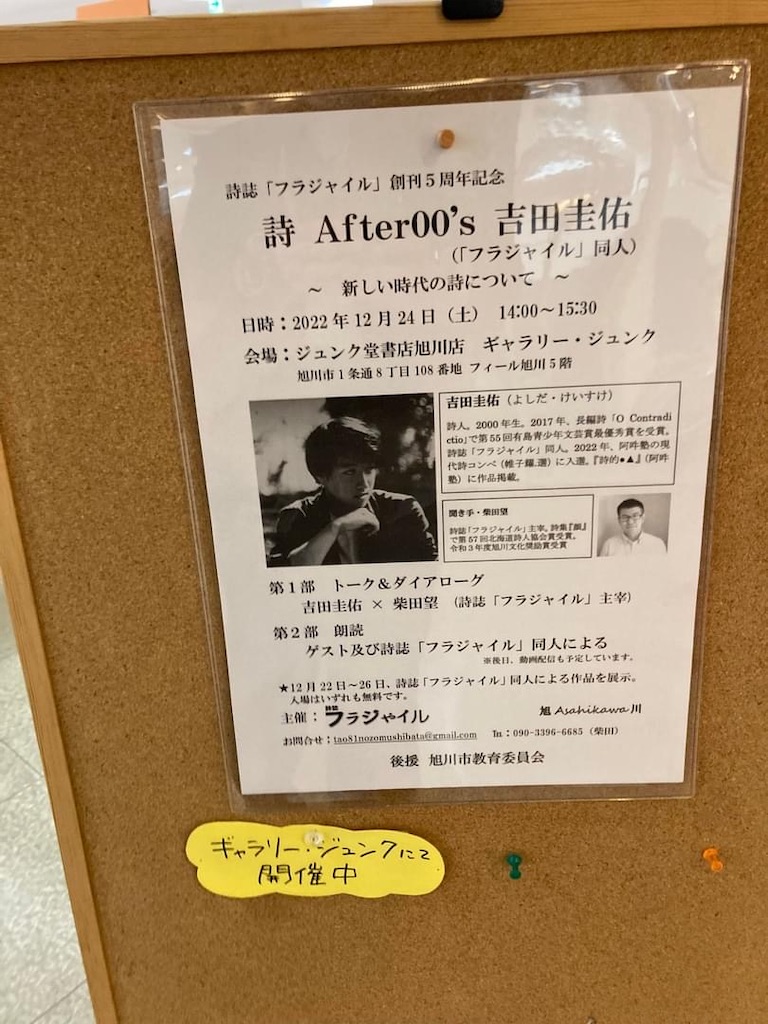 詩誌「フラジャイル」創刊5周年記念
詩 After00's 吉田圭佑
(「フラジャイル」同人)
～ 新しい時代の詩について ～
日時：2022年12月24日（土） 14:00～15:30
会場：ジュンク堂書店旭川店 ギャラリー・ジュンク
旭川市1条通8丁目108番地 フィール旭川5階
吉田圭佑（よしだ・けいすけ）
詩人。2000年生。2017年、長編詩「O Contradi
ctio」で第55回有島青少年文芸賞最優秀賞を受賞。
詩誌「フラジャイル」同人。2022年、阿吽塾の現
代詩コンペ（帷子耀.選）に入選。『詩的●▲』（阿吽
塾）に作品掲載。
聞き手・柴田望
詩誌「フラジャイル」主宰。詩集『顔』
で第57回北海道詩人協会賞受賞。
令和3年度旭川文化奨励賞受賞
第1部 トーク＆ダイアローグ
吉田圭佑 × 柴田望 （詩誌「フラジャイル」主宰）
第2部 朗読
ゲスト及び詩誌「フラジャイル」同人による
※後日、動画配信も予定しています。
★12月22日～26日、詩誌「フラジャイル」同人による作品を展示。
入場はいずれも無料です。
主催：詩誌フラジャイル 旭 Asahikawa 川
お問合せ：tao81nozomushibata@gmail.com ℡：090-3396-6685（柴田）
後援 旭川市教育委員会
ギャラリー・ジュンクにて
開催中